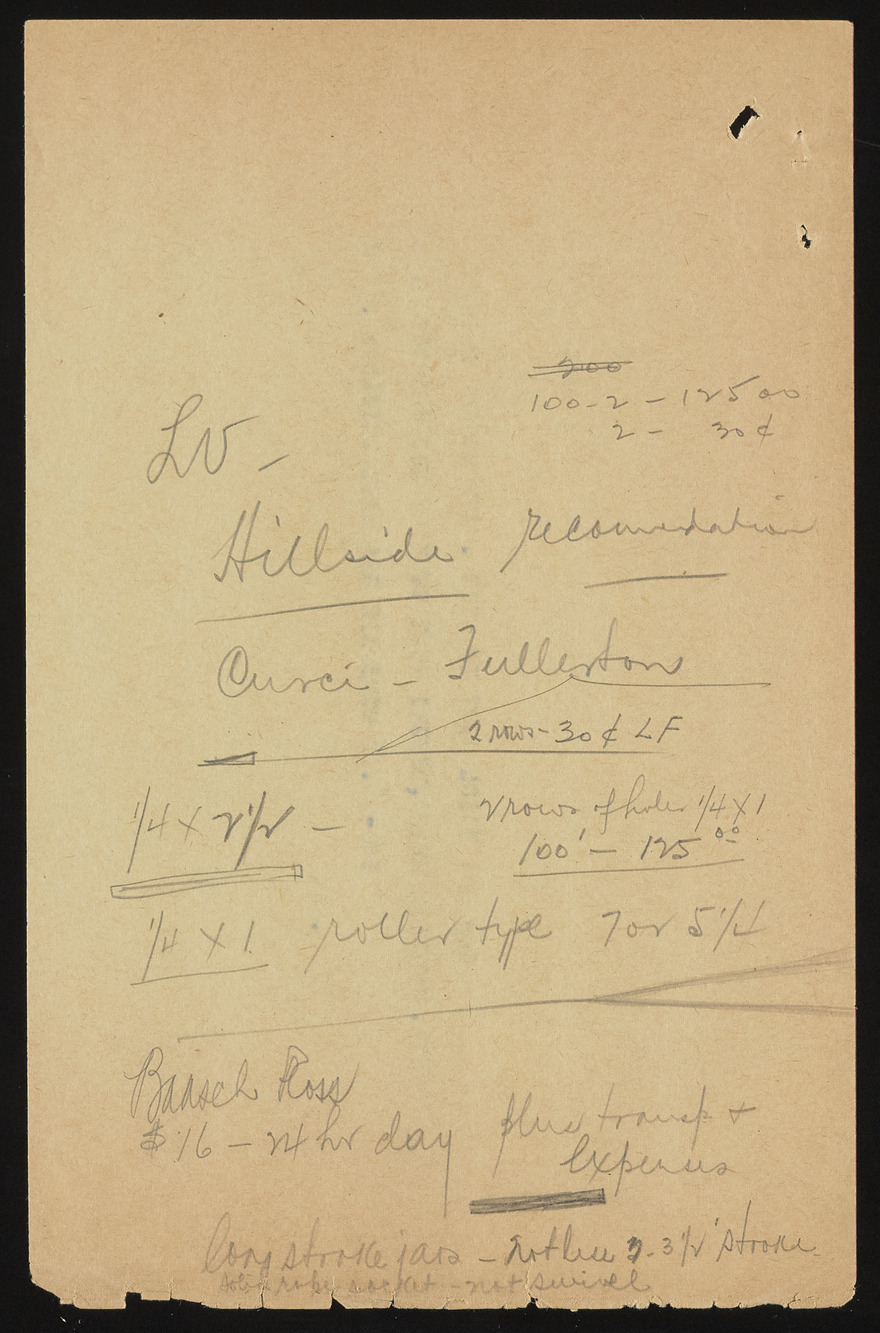 200
100-2 - 125 00
2 - 30¢
LV -
Hillside recomendation
Curci - Fullerton
2 rows - 30¢ LF
1/4 x 2 1/2 -
2 rows of holes 1/4 x 1
100' - 125 00
1/4 x 1 roller type 7 or 5 1/4
Baasch Ross
$16 - 24 hr day plus transp +
Expenses
long stroke jars - not less 3 1/2' stroke
rope socket - not swivel